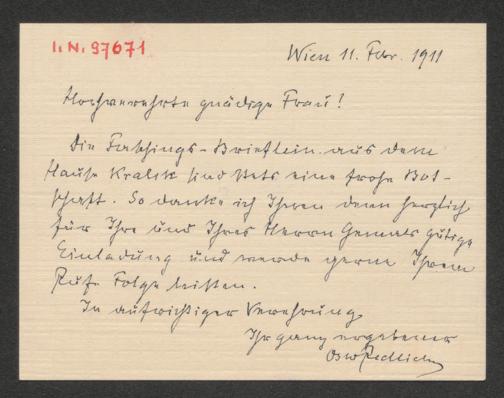 I. N. 97671
Wien 11. Febr. 1911
Hochverehrte gnädige Frau!
Die Faschings-Brieflein aus dem
Hause Kralik sind stets eine frohe Bot-
schaft. So danke ich Ihnen denn herzlich
für Ihre und Ihres Herrn Gemals gütige
Einladung und werde gerne Ihrem
Rufe Folge leisten.
In aufrichtiger Verehrung
Ihr ganz ergebener
Osw Redlich